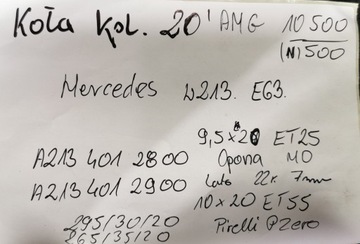 Koła kpl. 20' AMG 10 500
(N) 500
Mercedes W213. E63.
9,5x20 ET25
A213 401 2800 Opona MO
A213 401 2900 Lato 22r. 7mm
10x20 ET55
295/30/20 Pirelli PZero
265/35/20